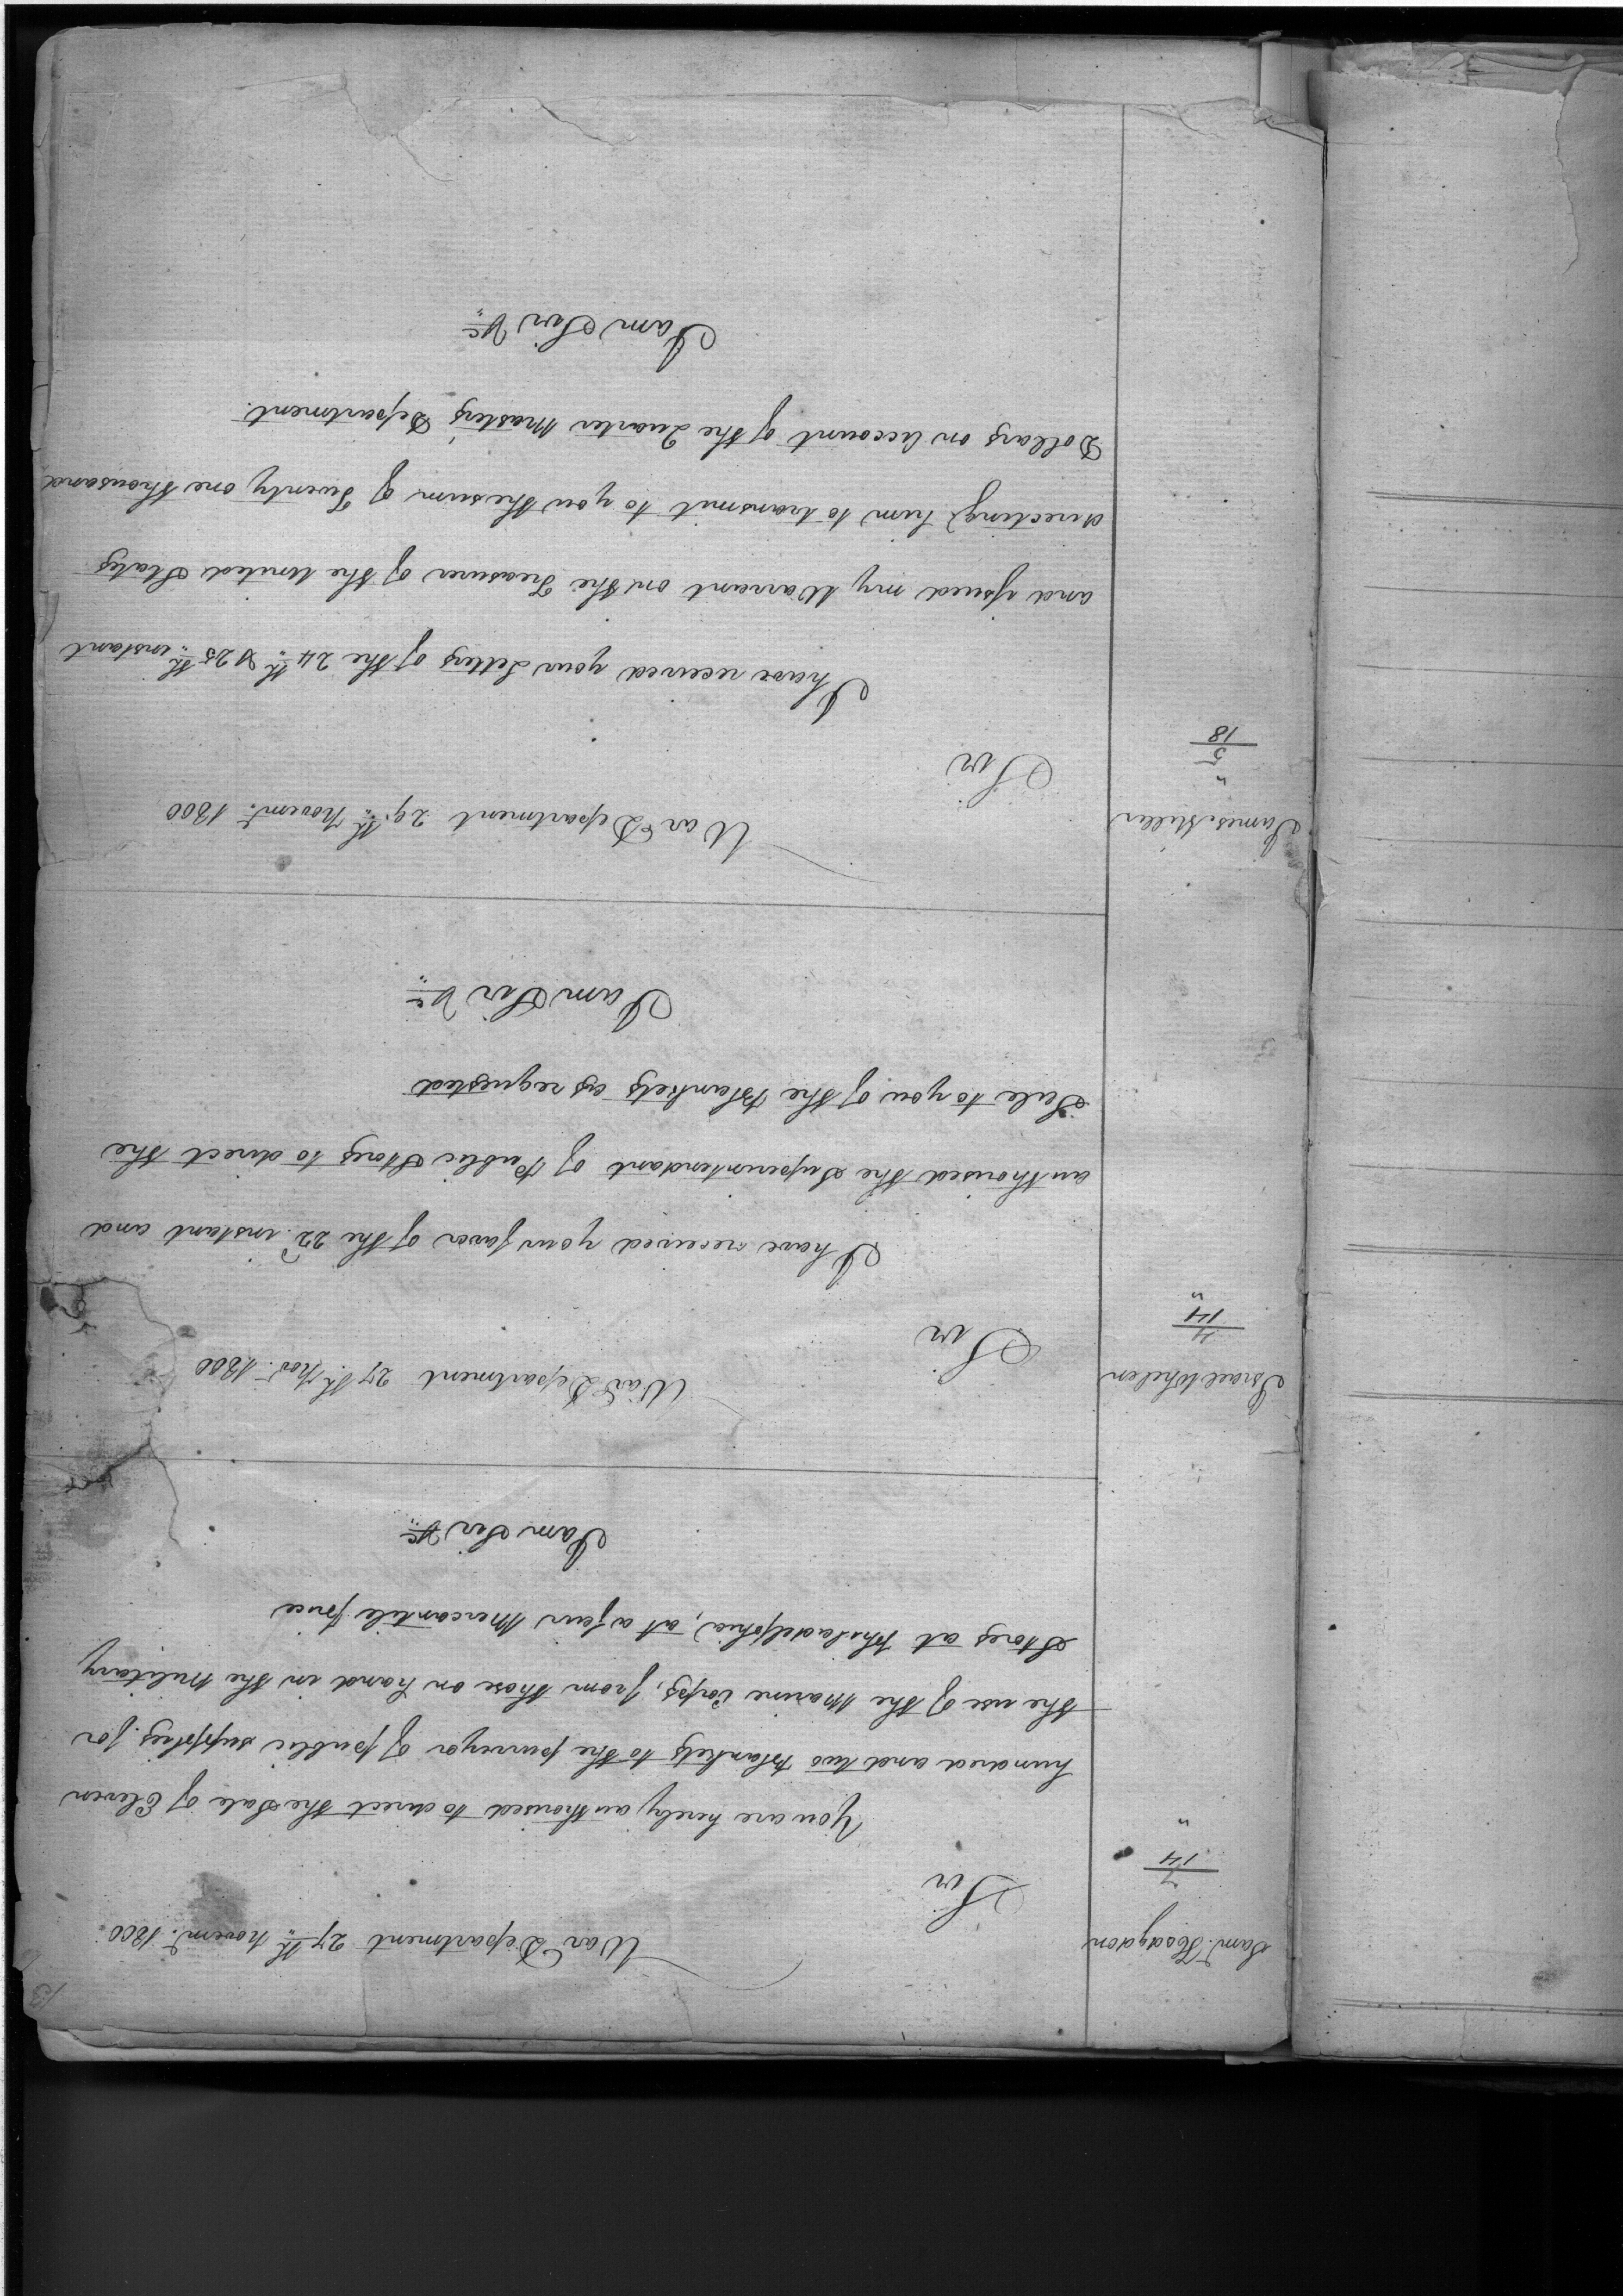 13
Saml. Hodgdon
7
14
"
War Department 27th. Novemr. 1800
Sir
You are hereby authorised to direct the Sale of Eleven
hundred and two Blankets to the purveyor of public supplies for
the use of the Marine Corps, from those on hand in the Military
Stores at Philadelphia, at a fair Mercantile price
I am Sir &c.
Israel Whelen
14
"
War Department 27th. Novr. 1800
Sir
I have received your favor of the 22d. instant and
authorised the Superintendant of Public Stores to direct the
Sale to you of the Blankets as requested
I am Sir &c.
James Miller
"
5
18
War Department 29th. Novemr. 1800
Sir
I have received your Letters of the 24th. & 25th. instant
and issued my Warrant on the Treasurer of the United States
directing him to transmit to you the sum of Twenty one thousand
Dollars on Account of the Quarter Master's Department.
I am Sir &c.